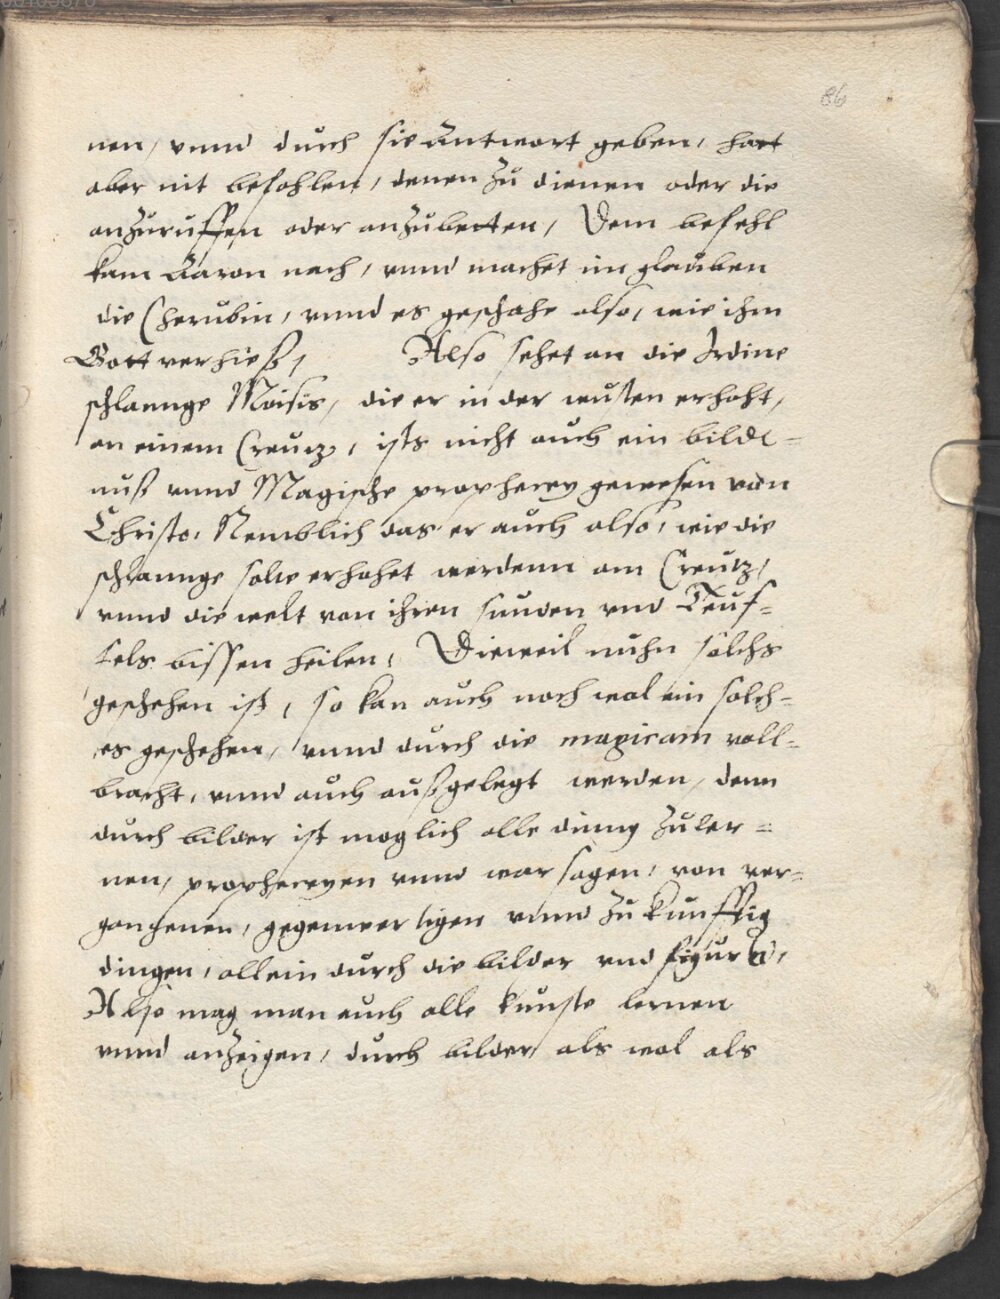 86
nen, vnnd durch sie Antwort geben, hatt
aber nit befohlen, denen zu dienen oder die
anzuruffen oder anzubetten, Dem befehl
kam Aaron nach, vnnd machet im glauben
die Cherubin, vnnd es geschahe also, wie ihm
Gott verhieß, Also sehet an die Irdine
schlannge Moisis, die er in der wusten erhoht,
an einem Creutz, ists nicht auch ein bildt=
nuß vnnd Magische prophecey gewesen von
Christo, Nemblich das er auch also, wie die
schlannge solte erhohet werdenn am Creutz,
vnnd die welt von ihren sunden vnd Teuf=
fels bissen heilen, Dieweil nuhn solchs
geschehen ist, so kan auch noch wol ein solch=
es geschehen, vnnd durch die magicam voll=
bracht, vnnd auch außgelegt werden, denn
durch bilder ist moglich alle ding zu ler=
nen, propheceyen vnnd warsagen, von ver=
gangenen, gegenwertigen vnnd zukunfftig
dingen, allein durch die bilder vnd figurn,
Also mag man auch alle kunste lernen
vnnd anzeigen, durch bilder als wol als